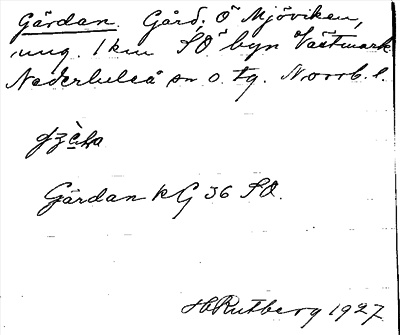 Gärdan. Gård. Ö Mjöviken,
ung. 1 km SÖ byn Västmark
Nederluleå sn o. tg. Norrb. l.
Gärdan kG 36 SO.
H Rutberg 1927